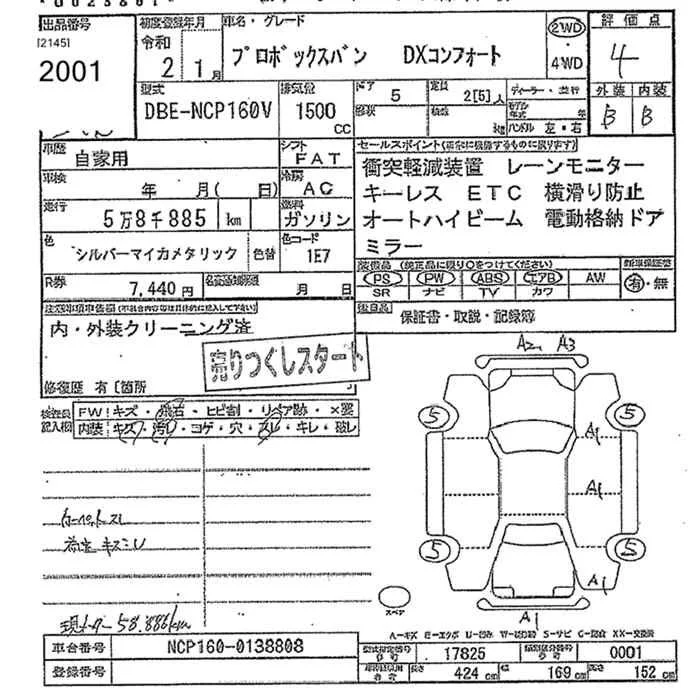 出品番号
[2145]
2001
初度登録年月
令和
2 1月
車名・グレード
プロボックスバン DXコンフォート
2WD
4WD
評価点
4
型式
DBE-NCP160V
排気量
1500
CC
ドア
5
形状
定員
2[5]人
積数
kg
ディーラー・並行
モデル年式 年
ハンドル 左・右
外装 内装
B B
車歴
自家用
シフト
FAT
車検
年 月(日)
冷房
AC
走行
5万8千885 km
燃料
ガソリン
色
シルバーマイカメタリック
色替
色コード
1E7
R券
7,440円
月 日
セールスポイント
衝突軽減装置 レーンモニター
キーレス ETC 横滑り防止
オートハイビーム 電動格納ドア
ミラー
装備品 (純正品に限り○をつけてください)
PS PW ABS エアB AW
SR ナビ TV カワ
新車保証書
有・無
後日品
保証書・取説・記録簿
内・外装クリーニング済
売りつくしスタート
修復歴 有〔箇所
検査員記入欄
FW キズ・飛石・ヒビ割・リペア跡・×要
内装 キズ・汚れ・コゲ・穴・スレ・キレ・破レ
A2 A3
5
5
A1
A1
5
5
A1
A1
カーペットスレ
荷室キズスレ
現メーター58.886km
スペア
A-キズ E-エクボ U-凹み W-波打跡 S-サビ C-腐食 XX-交換済
車台番号
NCP160-0138808
登録番号
型式指定番号
17825
類別区分番号
0001
長さ 424 cm
幅 169 cm
高さ 152 cm